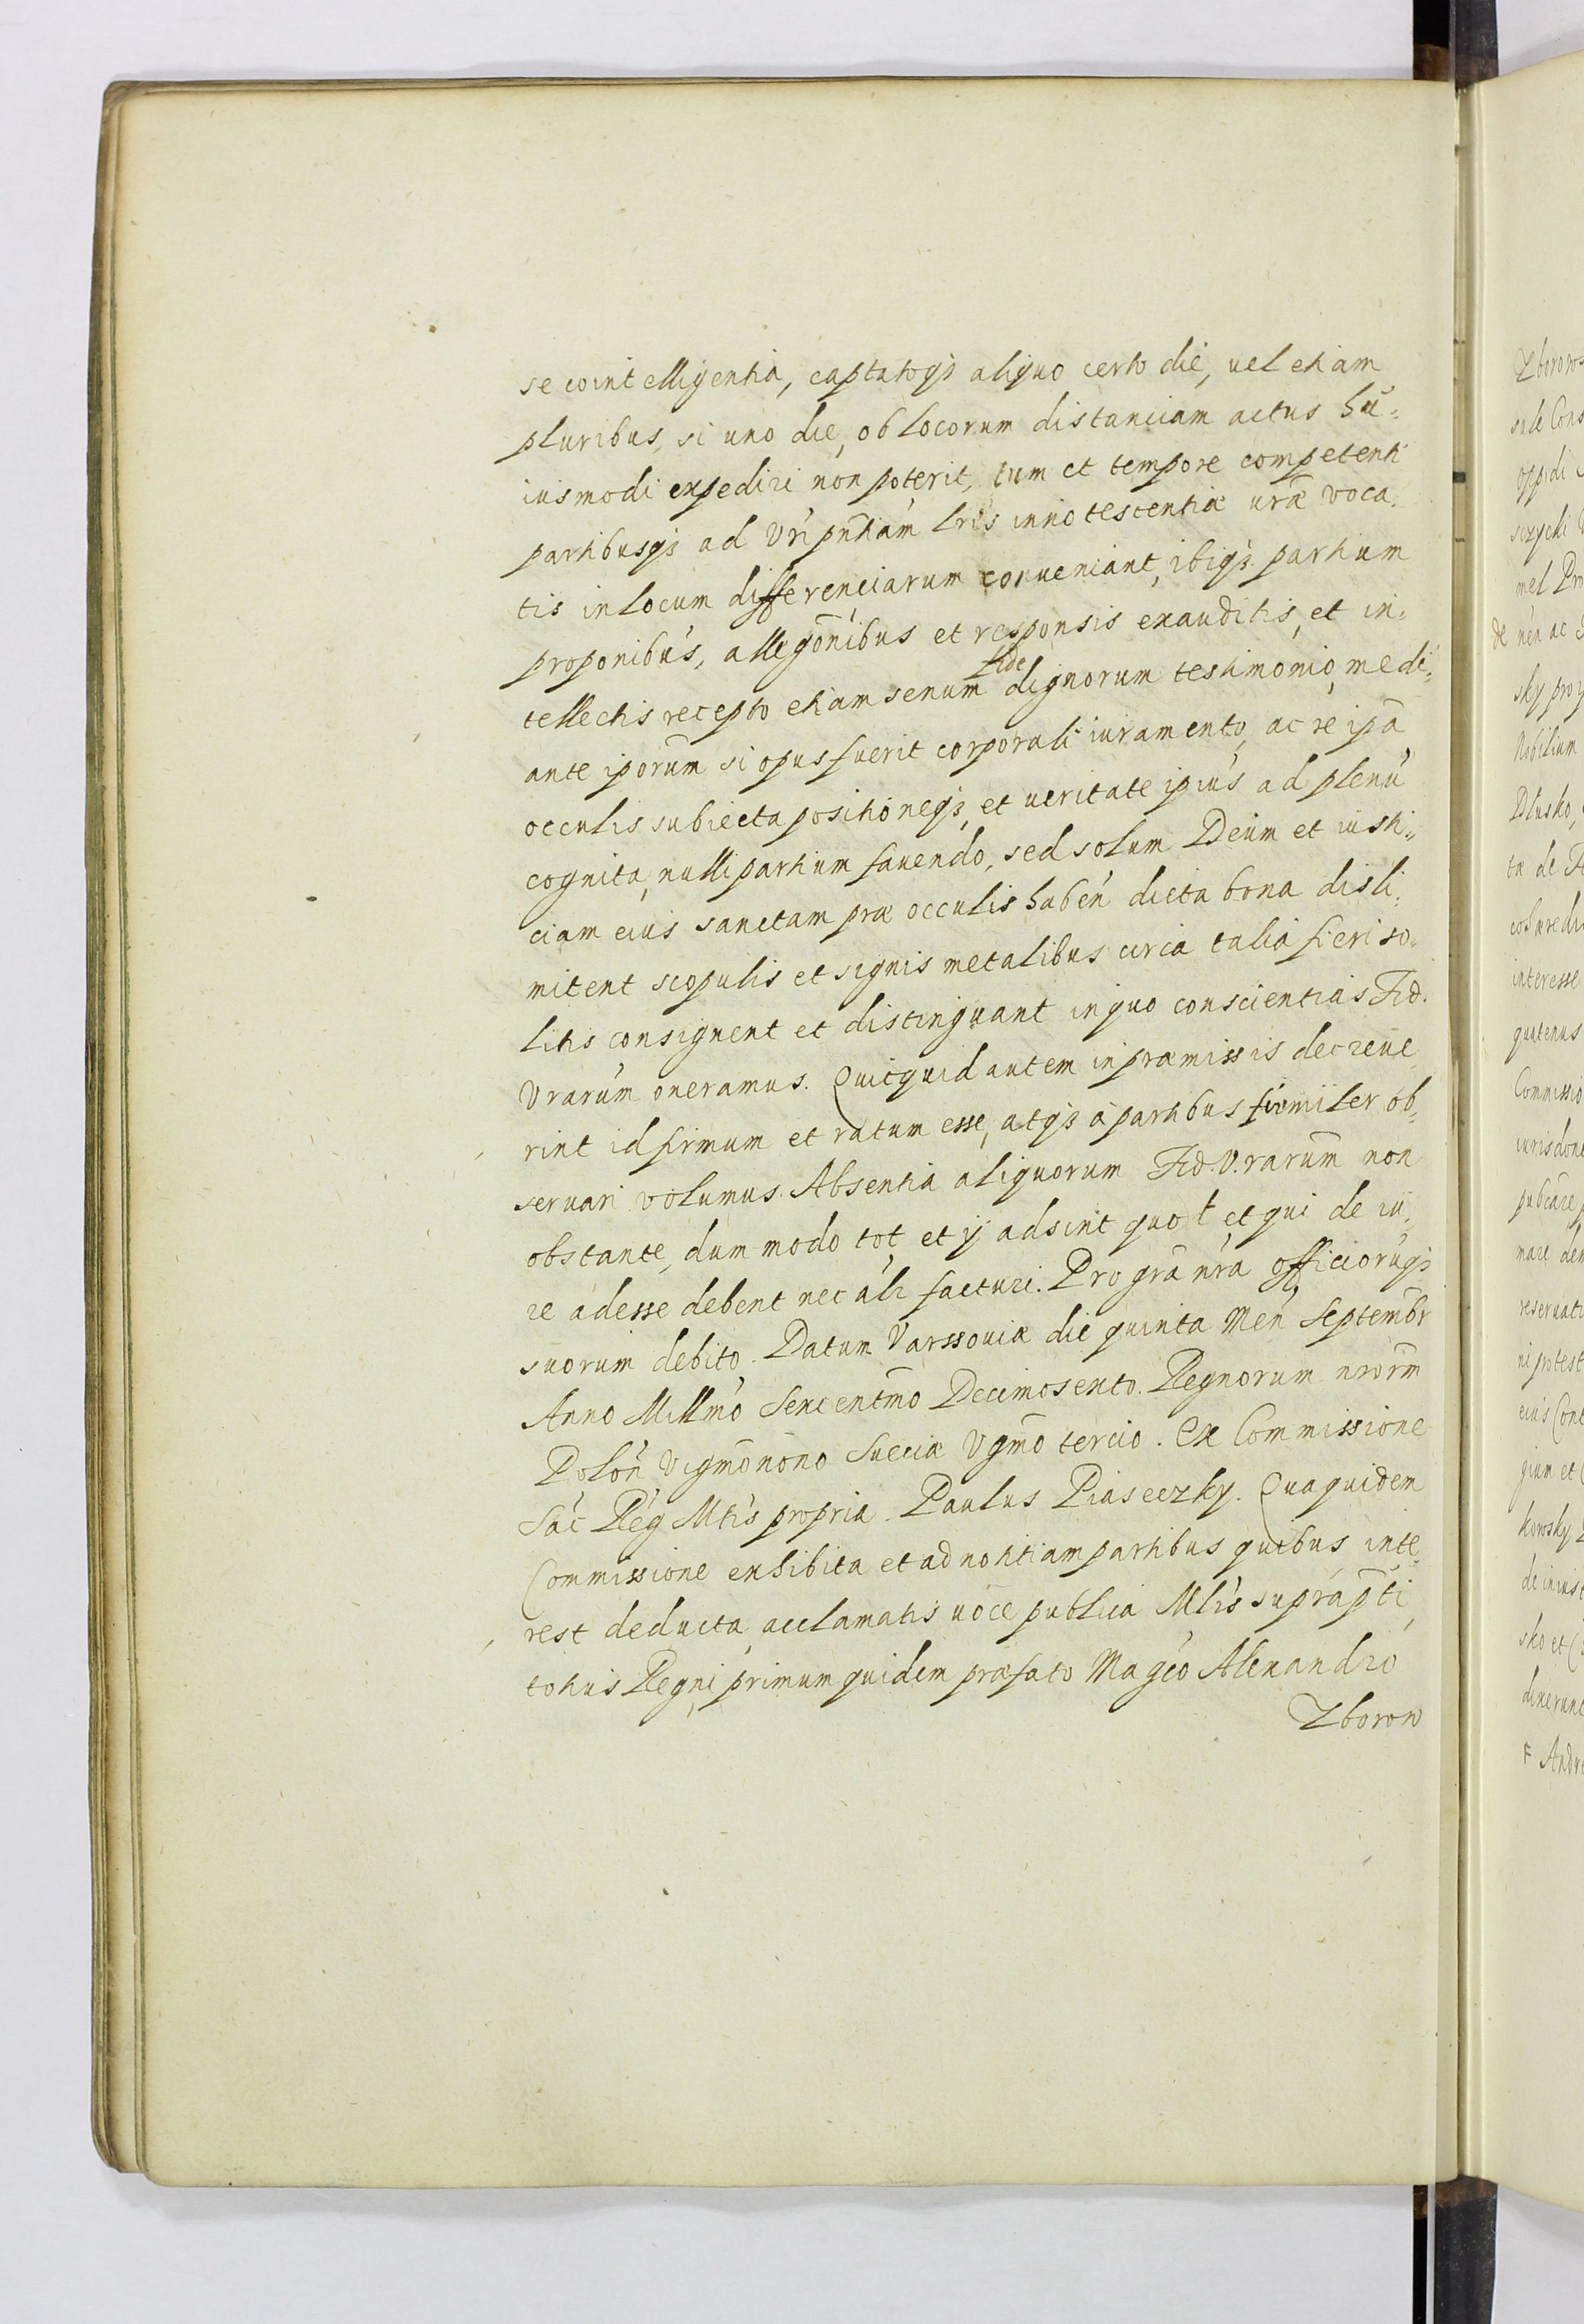 se cointelligentia, captatoqȝ aliquo certo die, uel etiam
pluribus, si uno die, ob locorum distanciam actus hu=
iusmodi expediri non poterit, tum et tempore competenti
partibusqȝ ad Vri pñtiam lris innotescentiæ uræ voca.
tis in locum differenciarum conueniant, ibiqȝ partium
proponibus, allegõnibus et responsis exauditis, et in=
tellectis recepto etiam senum fide dignorum testimonio, medi=
ante iporum si opus fuerit corporali iuramento, ac re ipã
occulis subiecta positioneqȝ, et ueritate ipius ad plenu
cognita, nulli partium fauendo, sed solum Deum et iusti=
ciam eius sanctam præ occulis haben dicta bona disli.
mitent scopulis et signis metalibus circa talia fieri so=
litis consignent et distinguant in quo conscientias Fid.
Vrarum oneramus. Quicquid autem in præmissis decreue
rint id firmum et ratum esse, atqȝ à partibus firmiter ob=
seruari volumus. Absentia aliquorum Fid. V.rarum non
obstante, dum modo tot, et ij adsint quot et qui de iu.
re adesse debent nec alr facturi. Pro grã nrã officiorũqȝ
suorum debito. Datum Varssouiæ die quinta Men Septembr
Anno Millmo Sexcentmo Decimosexto. Regnorum nrorm
Polon Vigmonono Sueciæ Vgmo tercio. Ex Commissione
Sac Reg Mtis propria. Paulus Piaseczky. Qua quidem
Commissione exhibita et ad notitiam partibus quibus inte
rest deducta, acclamatis uoce publica Mlis supra pti
totius Regni primum quidem præfato Magco Alexandro
Zborow
Zborows
sale Cons
oppidi
mel Pro
de nea ac
sky pro
Nobilium
Dlusko,
ta de
interesse
quatenus
Commissio
iurisdone
publare
nare den
reseruati
ni protest
eius Cont
gium et
kowsky
de iniust
sko et
dixerunt
Andre